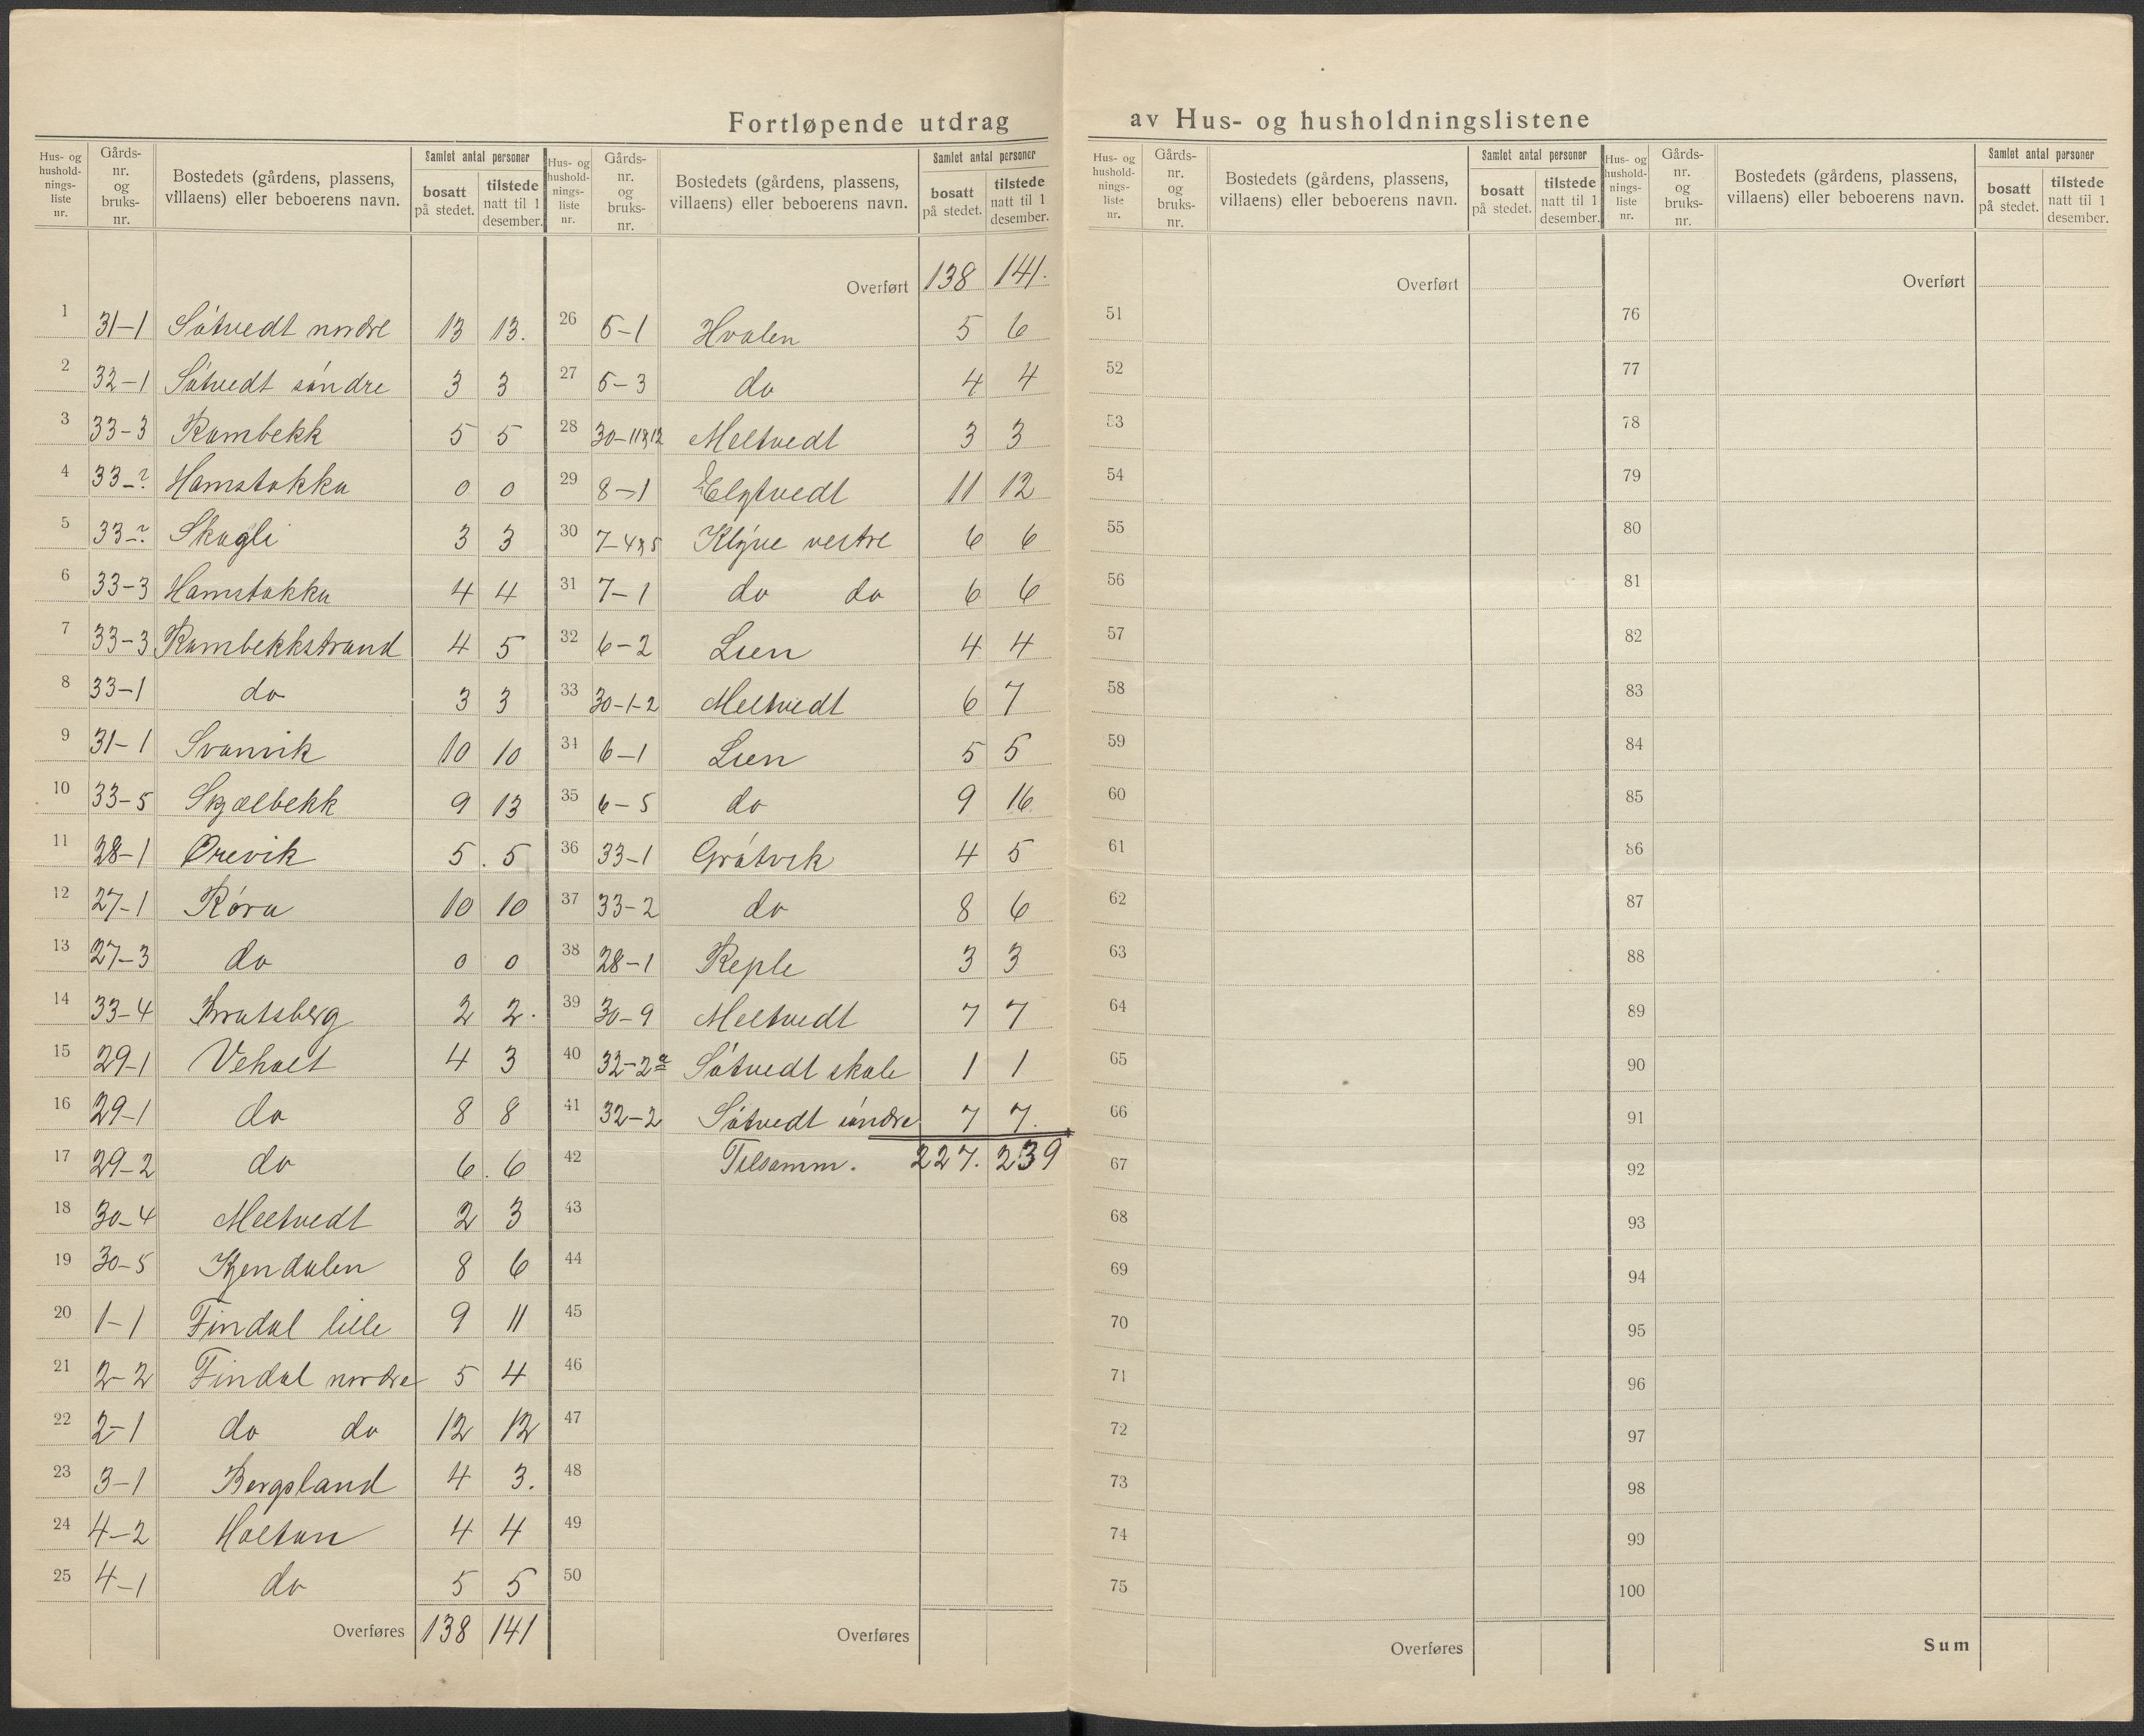 Fortløpende utdrag av Hus- og husholdningslistene
Hus- og hushold-nings-liste nr. Gårds-nr. og bruks-nr. Bostedets (gårdens, plassens, villaens) eller beboerens navn. Samlet antal personer bosatt på stedet. tilstede natt til 1 desember.
1 31-1 Søtvedt nordre 13 13.
2 32-1 Søtvedt søndre 3 3
3 33-3 Rambekk 5 5
4 33-? Hamstokka 0 0
5 33-? Skogli 3 3
6 33-3 Hamstokka 4 4
7 33-3 Rambekkstrand 4 5
8 33-1 do 3 3
9 31-1 Svanvik 10 10
10 33-5 Skjælbekk 9 13
11 28-1 Ørevik 5. 5
12 27-1 Røra 10 10
13 27-3 do 0 0
14 33-4 Bratsberg 2 2.
15 29-1 Veholt 4 3
16 29-1 do 8 8
17 29-2 do 6. 6
18 30-4 Meltvedt 2 3
19 30-5 Kjendalen 8 6
20 1-1 Findal lille 9 11
21 2-2 Findal nordre 5 4
22 2-1 do do 12 12
23 3-1 Bergsland 4 3.
24 4-2 Holtan 4 4
25 4-1 do 5 5
Overføres 138 141
Hus- og hushold-nings-liste nr. Gårds-nr. og bruks-nr. Bostedets (gårdens, plassens, villaens) eller beboerens navn. Samlet antal personer bosatt på stedet. tilstede natt til 1 desember.
Overført 138 141.
26 5-1 Hvalen 5 6
27 5-3 do 4 4
28 30-11&12 Meltvedt 3 3
29 8-1 Elgtvedt 11 12
30 7-4&5 Kløve vestre 6 6
31 7-1 do do 6 6
32 6-2 Lien 4 4
33 30-1-2 Meltvedt 6 7
34 6-1 Lien 5 5
35 6-5 do 9 16
36 33-1 Grøtvik 4 5
37 33-2 do 8 6
38 28-1 Reple 3 3
39 30-9 Meltvedt 7 7
40 32-2a Søtvedt skole 1 1
41 32-2 Søtvedt søndre 7 7.
42 Tilsamm. 227. 239
43
44
45
46
47
48
49
50
Overføres
Hus- og hushold-nings-liste nr. Gårds-nr. og bruks-nr. Bostedets (gårdens, plassens, villaens) eller beboerens navn. Samlet antal personer bosatt på stedet. tilstede natt til 1 desember.
Overført
51
52
53
54
55
56
57
58
59
60
61
62
63
64
65
66
67
68
69
70
71
72
73
74
75
Overføres
Hus- og hushold-nings-liste nr. Gårds-nr. og bruks-nr. Bostedets (gårdens, plassens, villaens) eller beboerens navn. Samlet antal personer bosatt på stedet. tilstede natt til 1 desember.
Overført
76
77
78
79
80
81
82
83
84
85
86
87
88
89
90
91
92
93
94
95
96
97
98
99
100
Sum